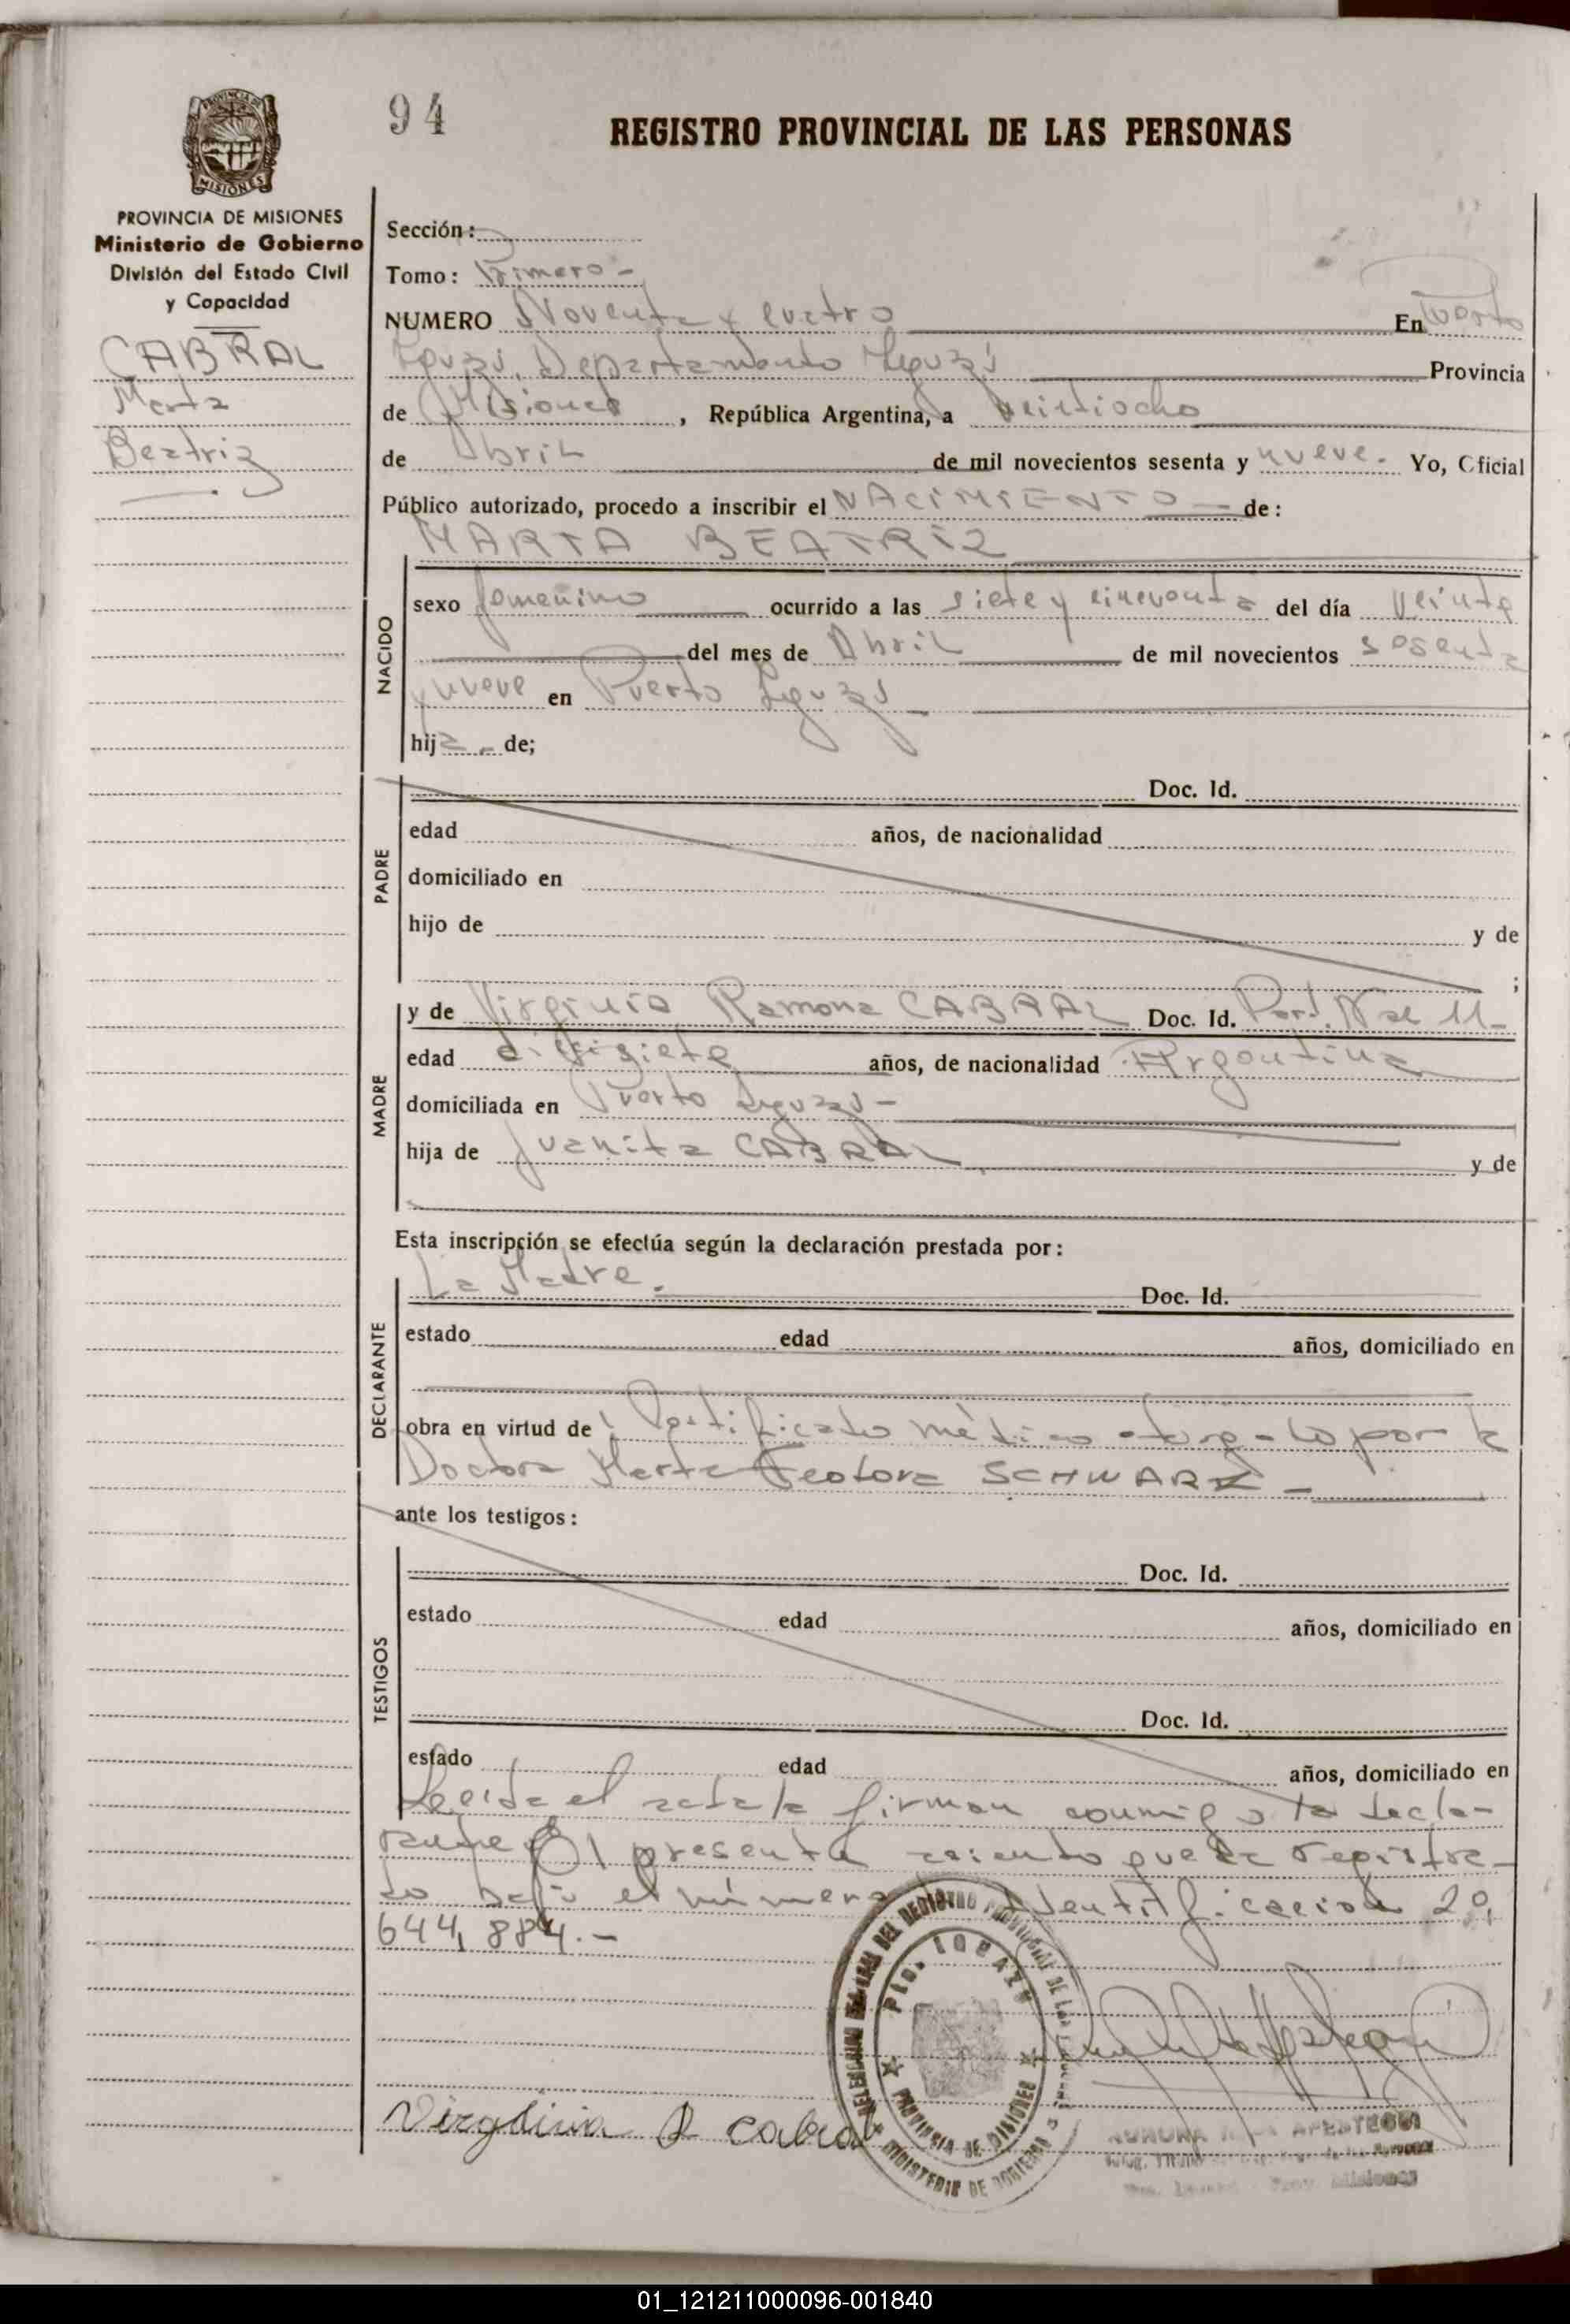 94
REGISTRO PROVINCIAL DE LAS PERSONAS
PROVINCIA DE MISIONES
PROVINCIA DE MISIONES
Ministerio de Gobierno
División del Estado Civil
y Capacidad
CABRAL
Marta
Beatriz
Sección:
Tomo: Primero -
NUMERO Noventa y cuatro En Puerto
Iguazú, Departamento Iguazú Provincia
de Misiones, República Argentina, a veintiocho
de Abril de mil novecientos sesenta y nueve. Yo, Oficial
Público autorizado, procedo a inscribir el NACIMIENTO de:
MARTA BEATRIZ
NACIDO
sexo femenino ocurrido a las siete y cincuenta del día veinte
del mes de Abril de mil novecientos sesenta
y nueve en Puerto Iguazú -
hija. de;
PADRE
Doc. Id.
edad años, de nacionalidad
domiciliado en
hijo de y de
;
MADRE
y de Virginia Ramona CABRAL Doc. Id. Part. Nac 11-
edad diecisiete años, de nacionalidad Argentina
domiciliada en Puerto Iguazú -
hija de Juanita CABRAL y de
Esta inscripción se efectúa según la declaración prestada por:
DECLARANTE
La Madre. Doc. Id.
estado edad años, domiciliado en
obra en virtud de: Certificado médico otorgado por la
Doctora Marta Teodora SCHWARZ -
ante los testigos:
TESTIGOS
Doc. Id.
estado edad años, domiciliado en
Doc. Id.
estado edad años, domiciliado en
Leida el acta la firman conmigo la decla-
rante El presente asiento queda registra-
do bajo el número Identificación 20,
644,884.-
Virgdinia R cabral
DEL REGISTRO PROVINCIAL DE LAS
Pto. IGUAZU
PROVINCIA DE MISIONES
MINISTERIO DE GOBIERNO
APESTEGUI
Misiones
01_121211000096-001840